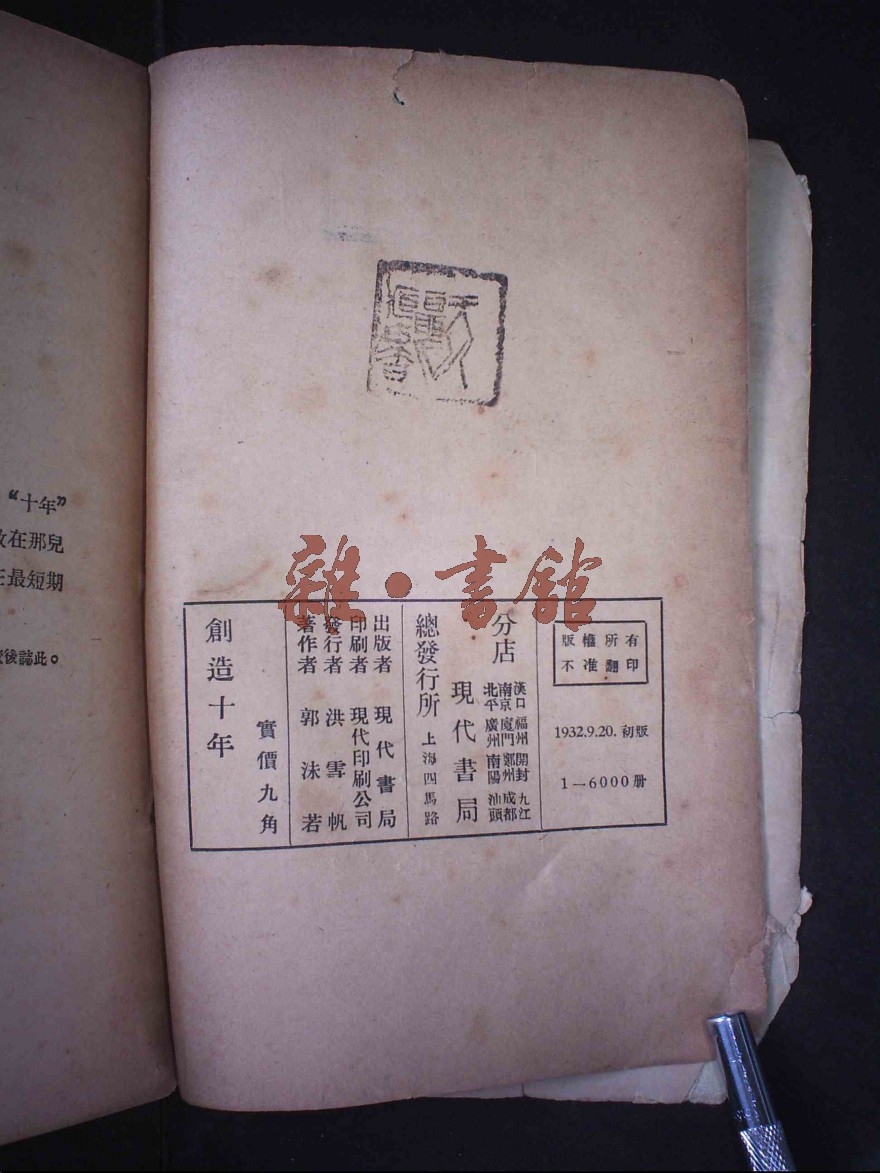 版權所有
不准翻印
1932.9.20. 初版
1—6000册
分店
漢口 福州 開封 九江
南京 廈門 鄭州 成都
北平 廣州 南陽 汕頭
現代書局
總發行所 上海四馬路
出版者 現代書局
印刷者 現代印刷公司
發行者 洪雪帆
著作者 郭沫若
實價九角
創造十年
雜·書館
“十年”
在那兒
最短期
後誌此。